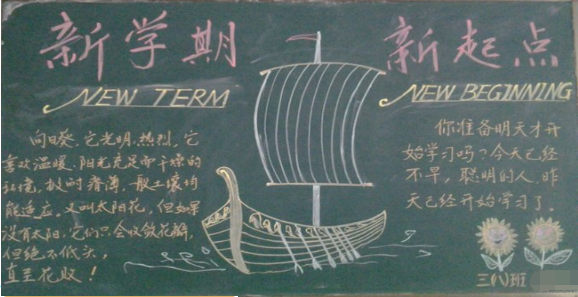 新学期
新起点
NEW TERM
NEW BEGINNING
向日葵,它光明,热烈,它
喜欢温暖,阳光充足而干燥的
环境,耐贫瘠薄,一般土壤均
能适应,又叫太阳花,但如果
没有太阳,它们只会收敛花瓣,
但绝不低头,
直至花败!
你准备明天才开
始学习吗?今天已经
不早,聪明的人,昨
天已经开始学习了。
三(八)班